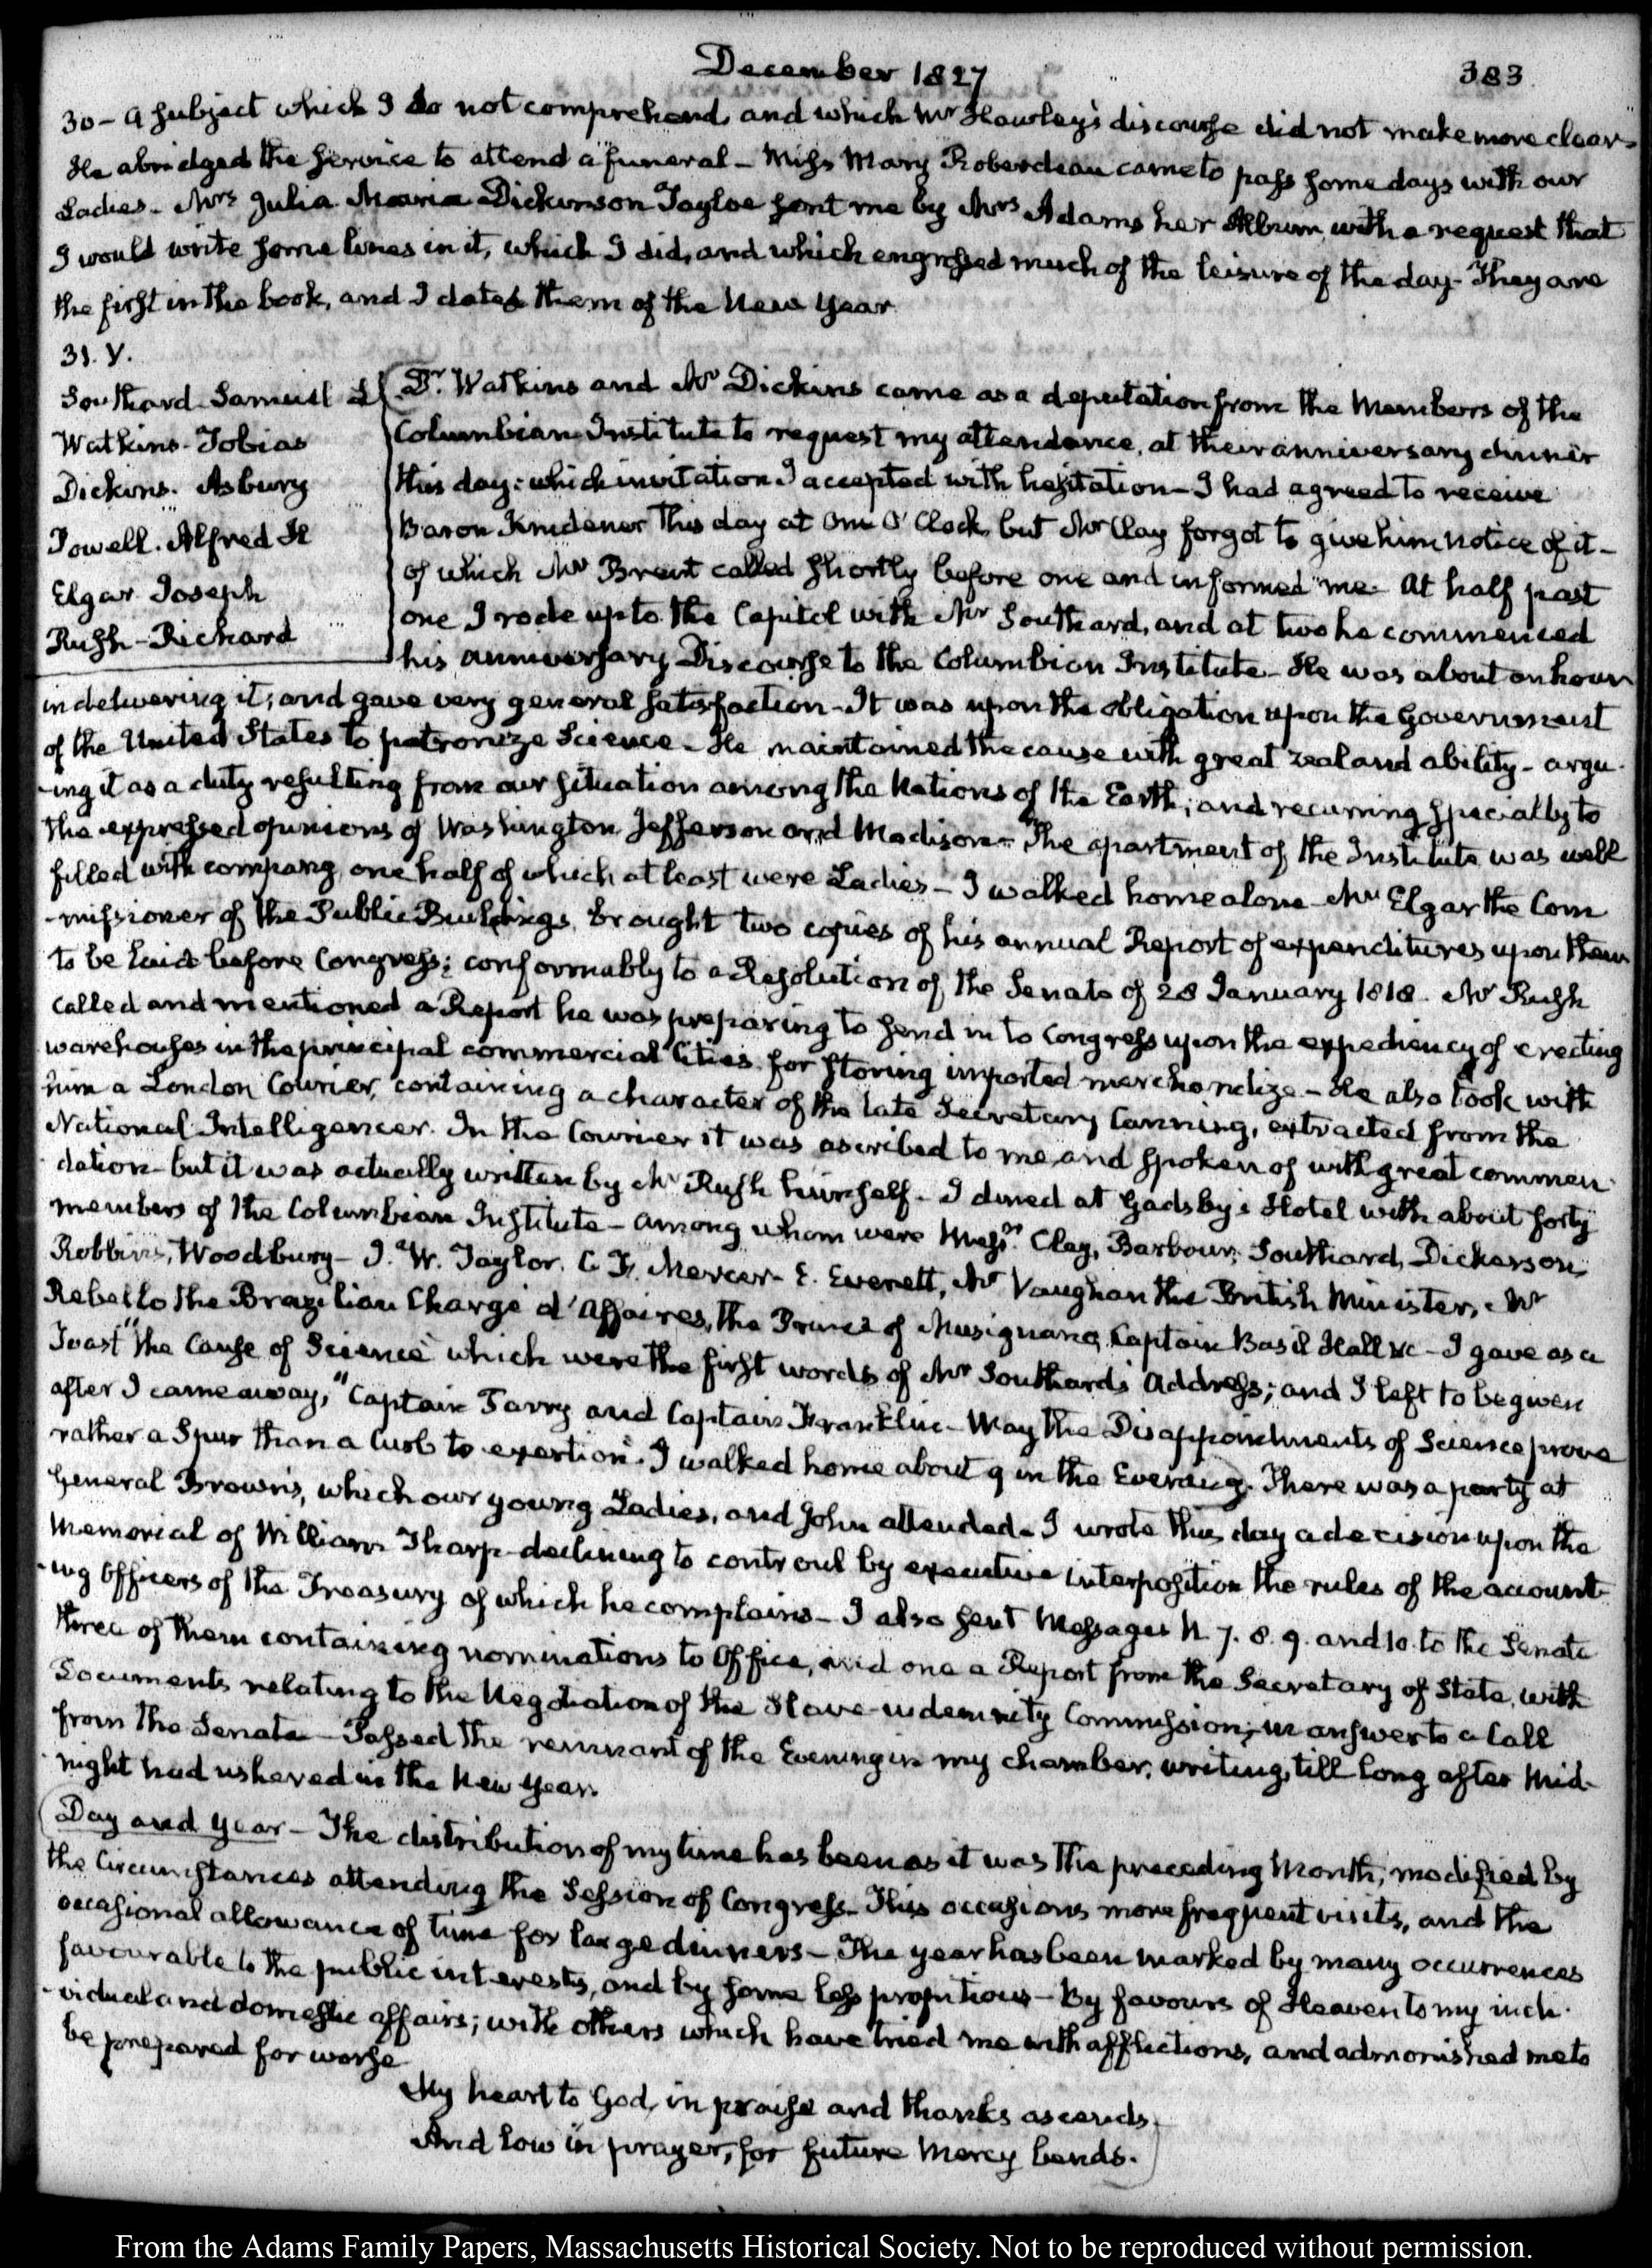 December 1827
383
30 – A subject which I do not comprehend, and which Mr Hawley's discourse did not make more clear –
He abridged the service to attend a funeral – Miss Mary Roberdeau came to pass some days with our
Ladies – Mrs Julia Maria Dickinson Tayloe sent me by Mrs Adams her Album, with a request that
I would write some lines in it, which I did, and which engrossed much of the leisure of the day – They are
the first in the book, and I dated them of the New Year
31. V.
Southard Samuel L
Watkins – Tobias
Dickins. Asbury
Powell. Alfred H
Elgar Joseph
Rush – Richard
Dr. Watkins and Mr Dickins came as a deputation from the Members of the
Columbian Institute to request my attendance, at their anniversary dinner
this day: which invitation I accepted with hesitation – I had agreed to receive
Baron Krudener this day at One O'Clock, but Mr Clay forgot to give him notice of it –
of which Mr Brent called shortly before one and informed me – At half past
one I rode up to the Capitol with Mr Southard, and at two he commenced
his anniversary Discourse to the Columbian Institute – He was about an hour
in delivering it; and gave very general satisfaction – It was upon the obligation upon the Government
of the United States to patronize Science – He maintained the cause with great zeal and ability – argu-
-ing it as a duty resulting from our situation among the Nations of the Earth; and recurring specially to
the expressed opinions of Washington Jefferson and Madison – The apartment of the Institute was well
filled with company, one half of which at least were Ladies – I walked home alone – Mr Elgar the Com
-missioner of the Public Buildings, brought two copies of his annual Report of expenditures upon them
to be laid before Congress; conformably to a Resolution of the Senate of 28 January 1818. Mr Rush
called and mentioned a Report he was preparing to send in to Congress upon the expediency of erecting
warehouses in the principal commercial Cities for storing imported merchandize – He also took with
him a London Courier, containing a character of the late Secretary Canning, extracted from the
National Intelligencer. In the Courier it was ascribed to me, and spoken of with great commen-
dation – but it was actually written by Mr Rush himself – I dined at Gadsby's Hotel with about forty
members of the Columbian Institute – among whom were Messrs. Clay, Barbour, Southard, Dickerson,
Robbins, Woodbury – J. W. Taylor. C. F. Mercer – E. Everett, Mr Vaughan the British Minister, Mr
Rebello the Brazilian Chargé d'Affaires, the Prince of Musignano, Captain Basil Hall &c – I gave as a
Toast "the Cause of Science" which were the first words of Mr Southard's Address; and I left to be given
after I came away, "Captain Parry and Captain Franklin – May the Disappointments of Science prove
rather a Spur than a Curb to exertion". I walked home about 9 in the Evening. There was a party at
General Brown's, which our young Ladies, and John attended – I wrote this day a decision upon the
Memorial of William Tharp – declining to controul by executive interposition the rules of the account-
-ing Officers of the Treasury of which he complains – I also sent Messages N. 7. 8. 9. and 10. to the Senate
three of them containing nominations to Office, and one a Report from the Secretary of State, with
Documents relating to the Negotiation of the Slave-indemnity Commission; in answer to a Call
from the Senate – Passed the remnant of the Evening in my chamber, writing, till long after Mid-
night had ushered in the New Year.
Day and Year – The distribution of my time has been as it was the preceding Month, modified by
the Circumstances attending the Session of Congress – This occasions more frequent visits, and the
occasional allowance of time for large dinners – The year has been marked by many occurrences
favourable to the public interests, and by some less propitious – By favours of Heaven to my indi-
-vidual and domestic affairs; with others which have tried me with afflictions, and admonished me to
be prepared for worse
My heart to God, in praise and thanks ascends,
And low in prayer, for future Mercy bends.
From the Adams Family Papers, Massachusetts Historical Society. Not to be reproduced without permission.